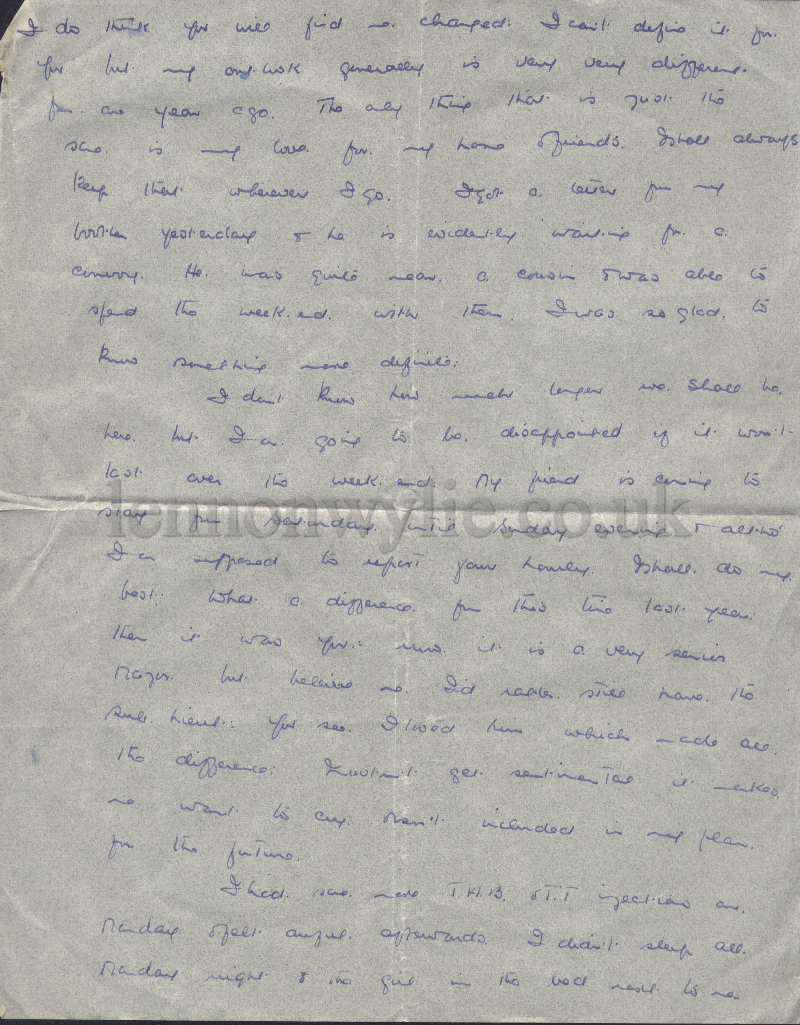 I do think you will find me changed. I can't define it for
you but my outlook generally is very very different
from one year ago. The only thing that is just the
same is my love for my home & friends. I shall always
keep that wherever I go. I got a letter from my
brother yesterday & he is evidently waiting for a
convoy. He was quite near a cousin & was able to
spend the week.end. with them. I was so glad. to
know something more definite.
I don't know how much longer we shall be
here but I am going to be disappointed if it won't
last over the week.end. My friend is coming to
stay from Saturday until Sunday evening & altho'
I am supposed to report your homely. I shall do my
best. What a difference from this time last year.
then it was you. now it is a very senior
Major but believe me. I'd rather still have the
sub. lieut. You see. I loved him which made all
the difference. I mustn't get sentimental it makes
me want to cry. & isn't included in my plan
for the future.
I had some more T.A.B. & T.T injections on
Monday & felt awful afterwards. I didn't sleep all
Monday night & the girl in the bed next to me
lennonwylie.co.uk